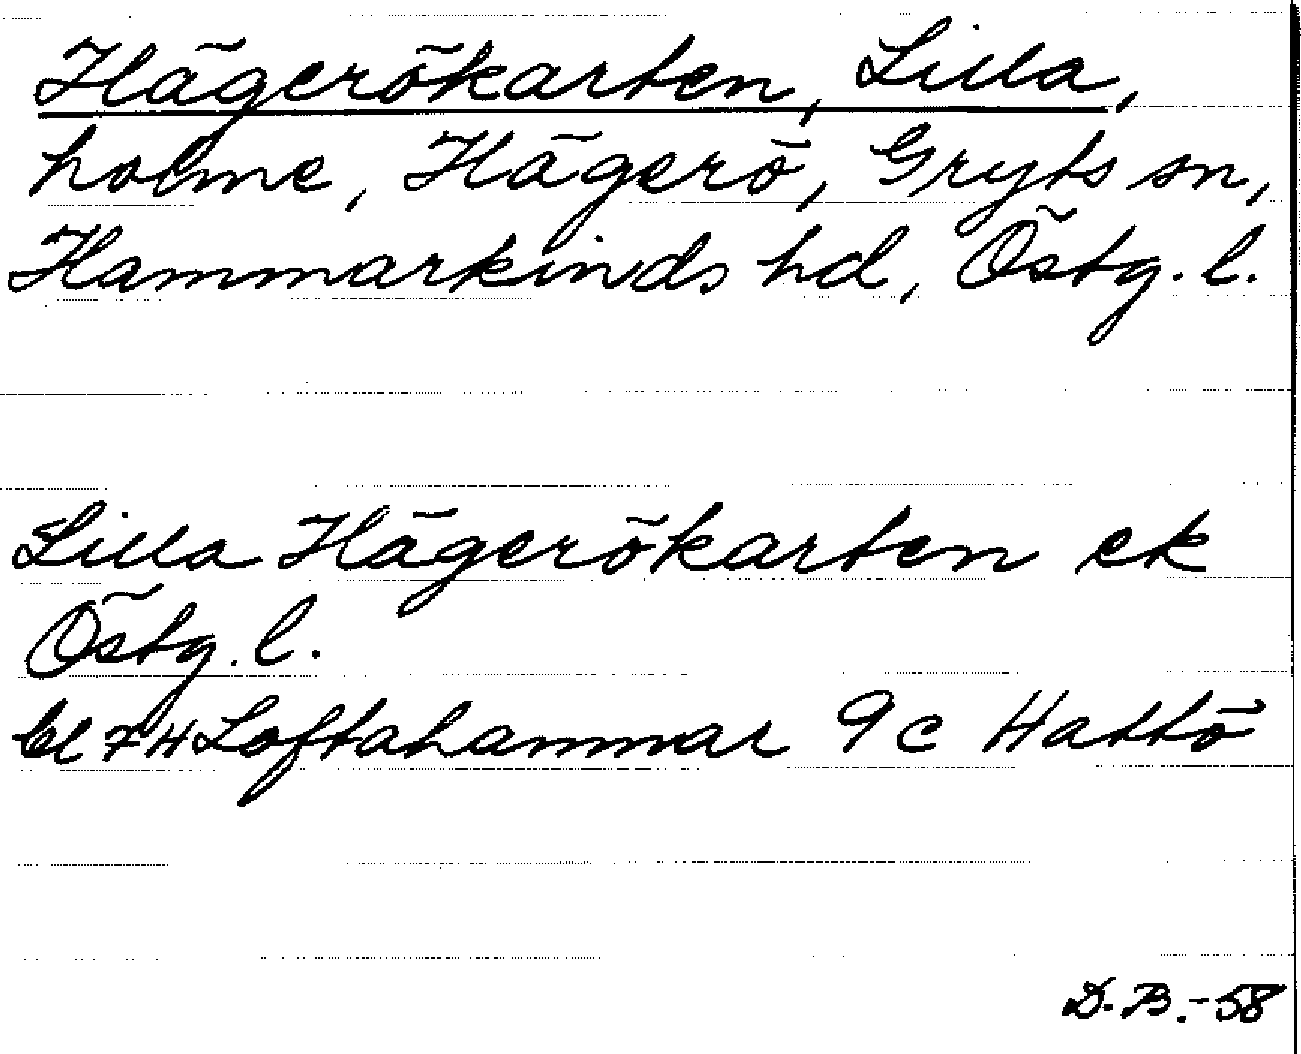 Hägerökarten, Lilla,
holme, Hägerö, Gryts sn,
Hammarkinds hd, Östg. l.
Lilla Hägerökarten ek
Östg. l.
bl 7H Loftahammar 9c Hattö
D.B.-58